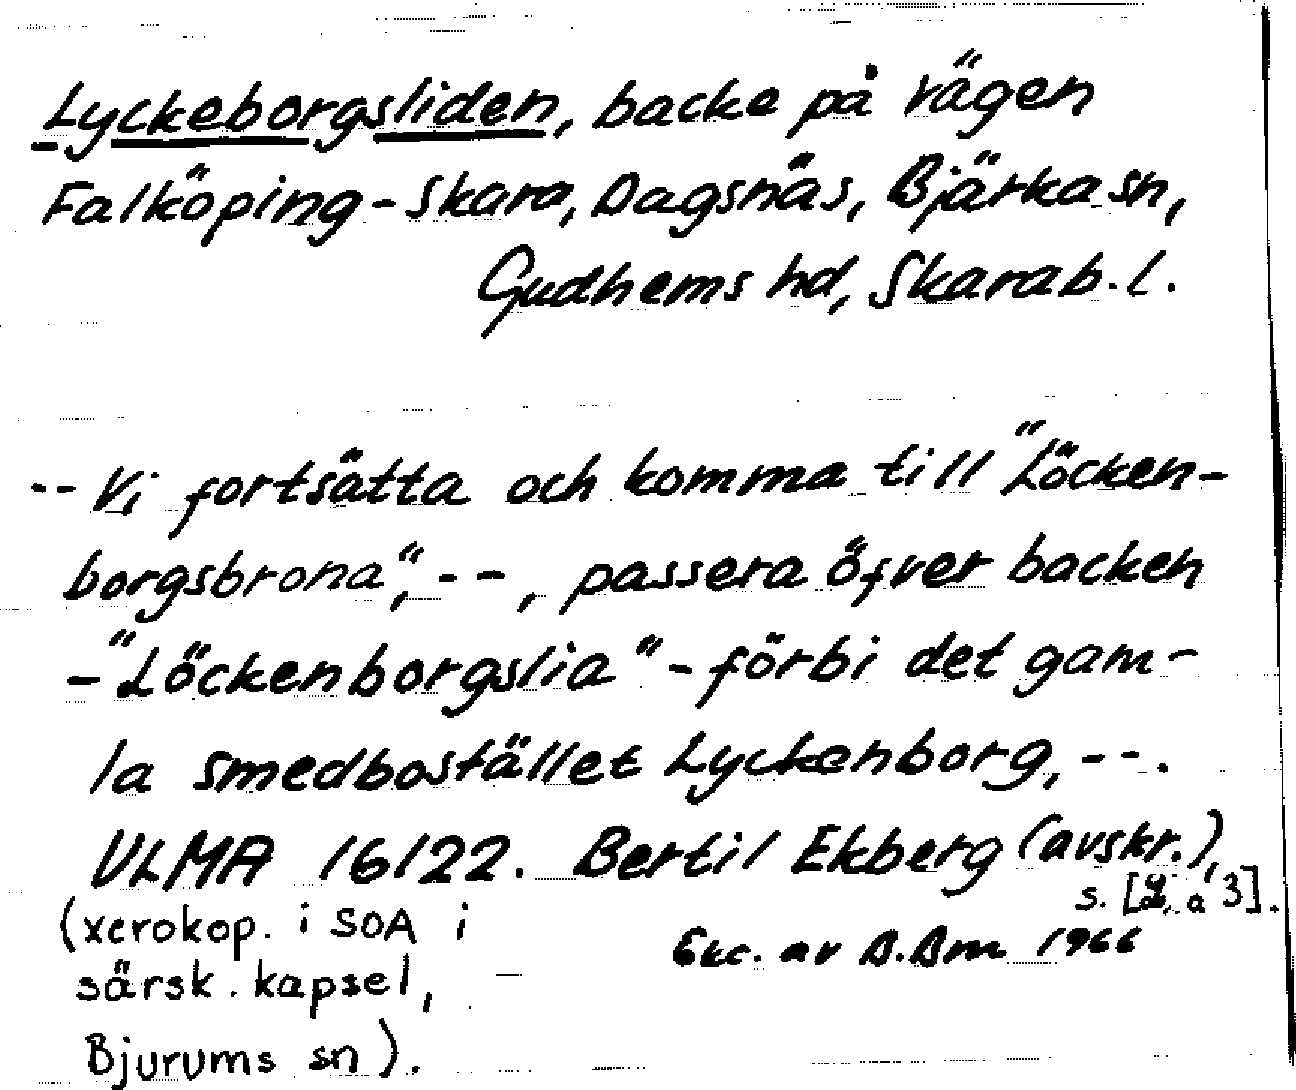 Lyckeborgsliden, backe på vägen
Falköping-Skara, Dagsnäs, Bjärka sn,
Gudhems hd, Skarab. l.
-- Vi fortsätta och komma till "Löcken-
borgsbrona", --, passera öfver backen
-"Löckenborgslia"- förbi det gam-
la smedbostället Lyckenborg, --.
ULMA 16122. Bertil Ekberg (avskr.),
s. [2 a 3].
(xerokop. i SOA i
särsk. kapsel,
Bjurums sn).
Exc. av B.Bm 1966